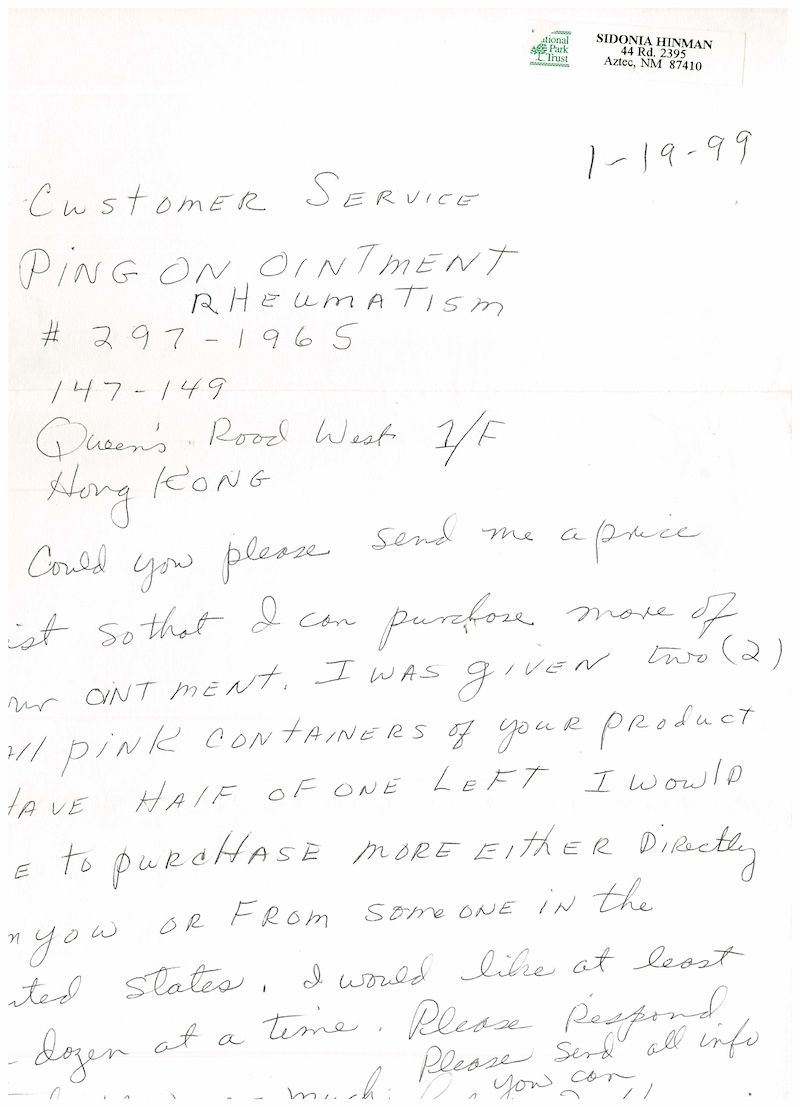 tional
Park
Trust
SIDONIA HINMAN
44 Rd. 2395
Aztec, NM 87410
1-19-99
CUSTOMER SERVICE
PING ON OINTMENT
RHEUMATISM
# 297-1965
147-149
Queen's Road West 1/F
Hong KONG
Could you please send me a price
ist so that I can purchase more of
ur OINTMENT. I WAS gIVEN two (2)
all PINK CONTAINERS of yOUR PRODUCT
HAVE HAlF OF ONE LEFT I WOUlD
E to PURCHASE MORE EITHER DIRECtly
m you OR FROM SOMEONE IN the
ited States. I would like at least
dozen at a time. Please Respond
Please send all info
you can
much